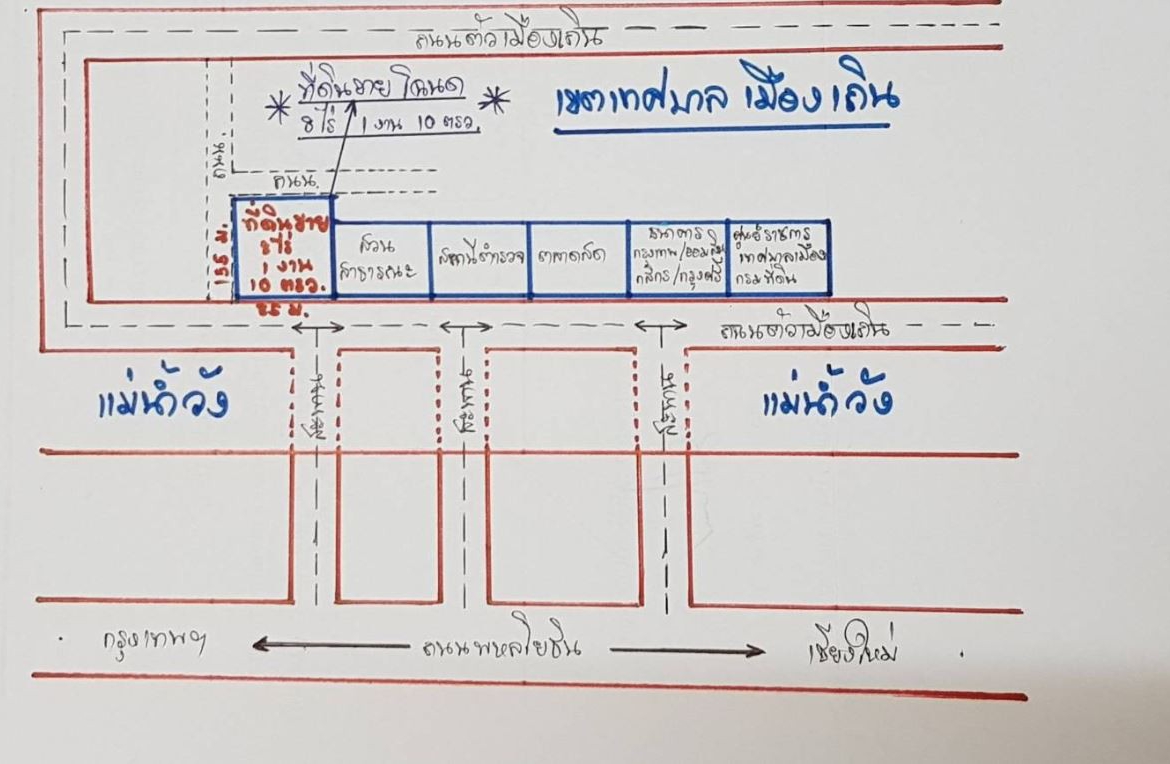 ถนนตัวเมืองเถิน
* ที่ดินขาย โฉนด *
8 ไร่ 1 งาน 10 ตรว.
เขตเทศบาล เมืองเถิน
ถนน.
ถนน.
ที่ดินขาย
8 ไร่
1 งาน
10 ตรว.
155 ม.
85 ม.
สวน
สาธารณะ
สถานีตำรวจ
ตลาดสด
ธนาคาร
กรุงเทพ/ออมสิน
กสิกร/กรุงศรี
ศูนย์ราชการ
เทศบาลเมือง
กรมที่ดิน
ถนนตัวเมืองเถิน
แม่น้ำวัง
แม่น้ำวัง
กรุงเทพฯ
ถนนพหลโยธิน
เชียงใหม่